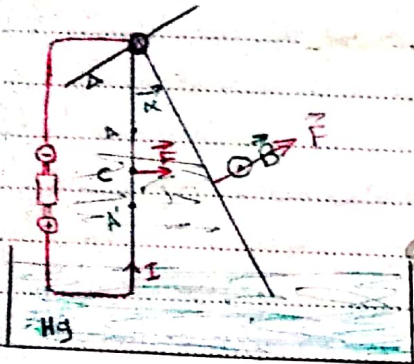 Δ
α
A
C
F
B
F
A'
I
Hg